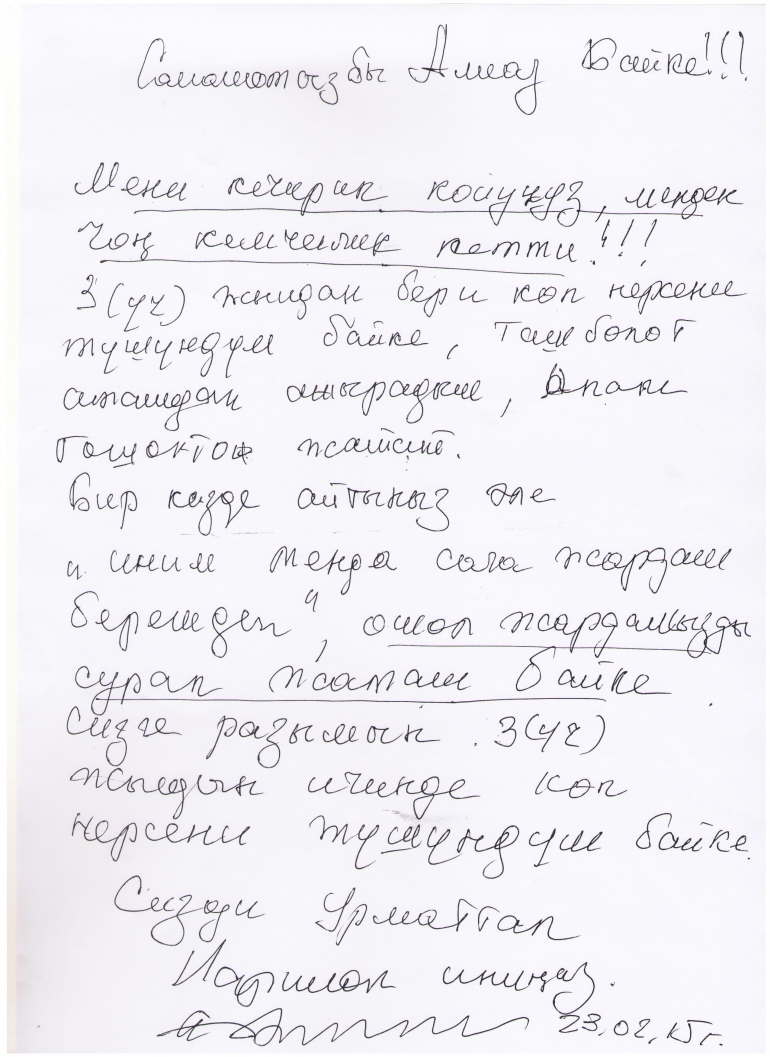 Саламатсызбы Алмаз Байке!!!
Мени кечирип коюуңуз, менден
Чоң кемчилик кетти!!!
3(үч) жылдан бери көп нерсени
түшүндүм байке, Ташболот
акамдан ажырадым, Апам
төшөктө жатат.
Бир кезде айтыңыз эле
"иним менда сага жардам
берем деп", ошол жардамыңызды
сурап жатам байке
Сизге разымын. 3(үч)
жылдын ичинде көп
нерсени түшүндүм байке.
Сизди Урматтап
иниңиз.
23,02,15г.